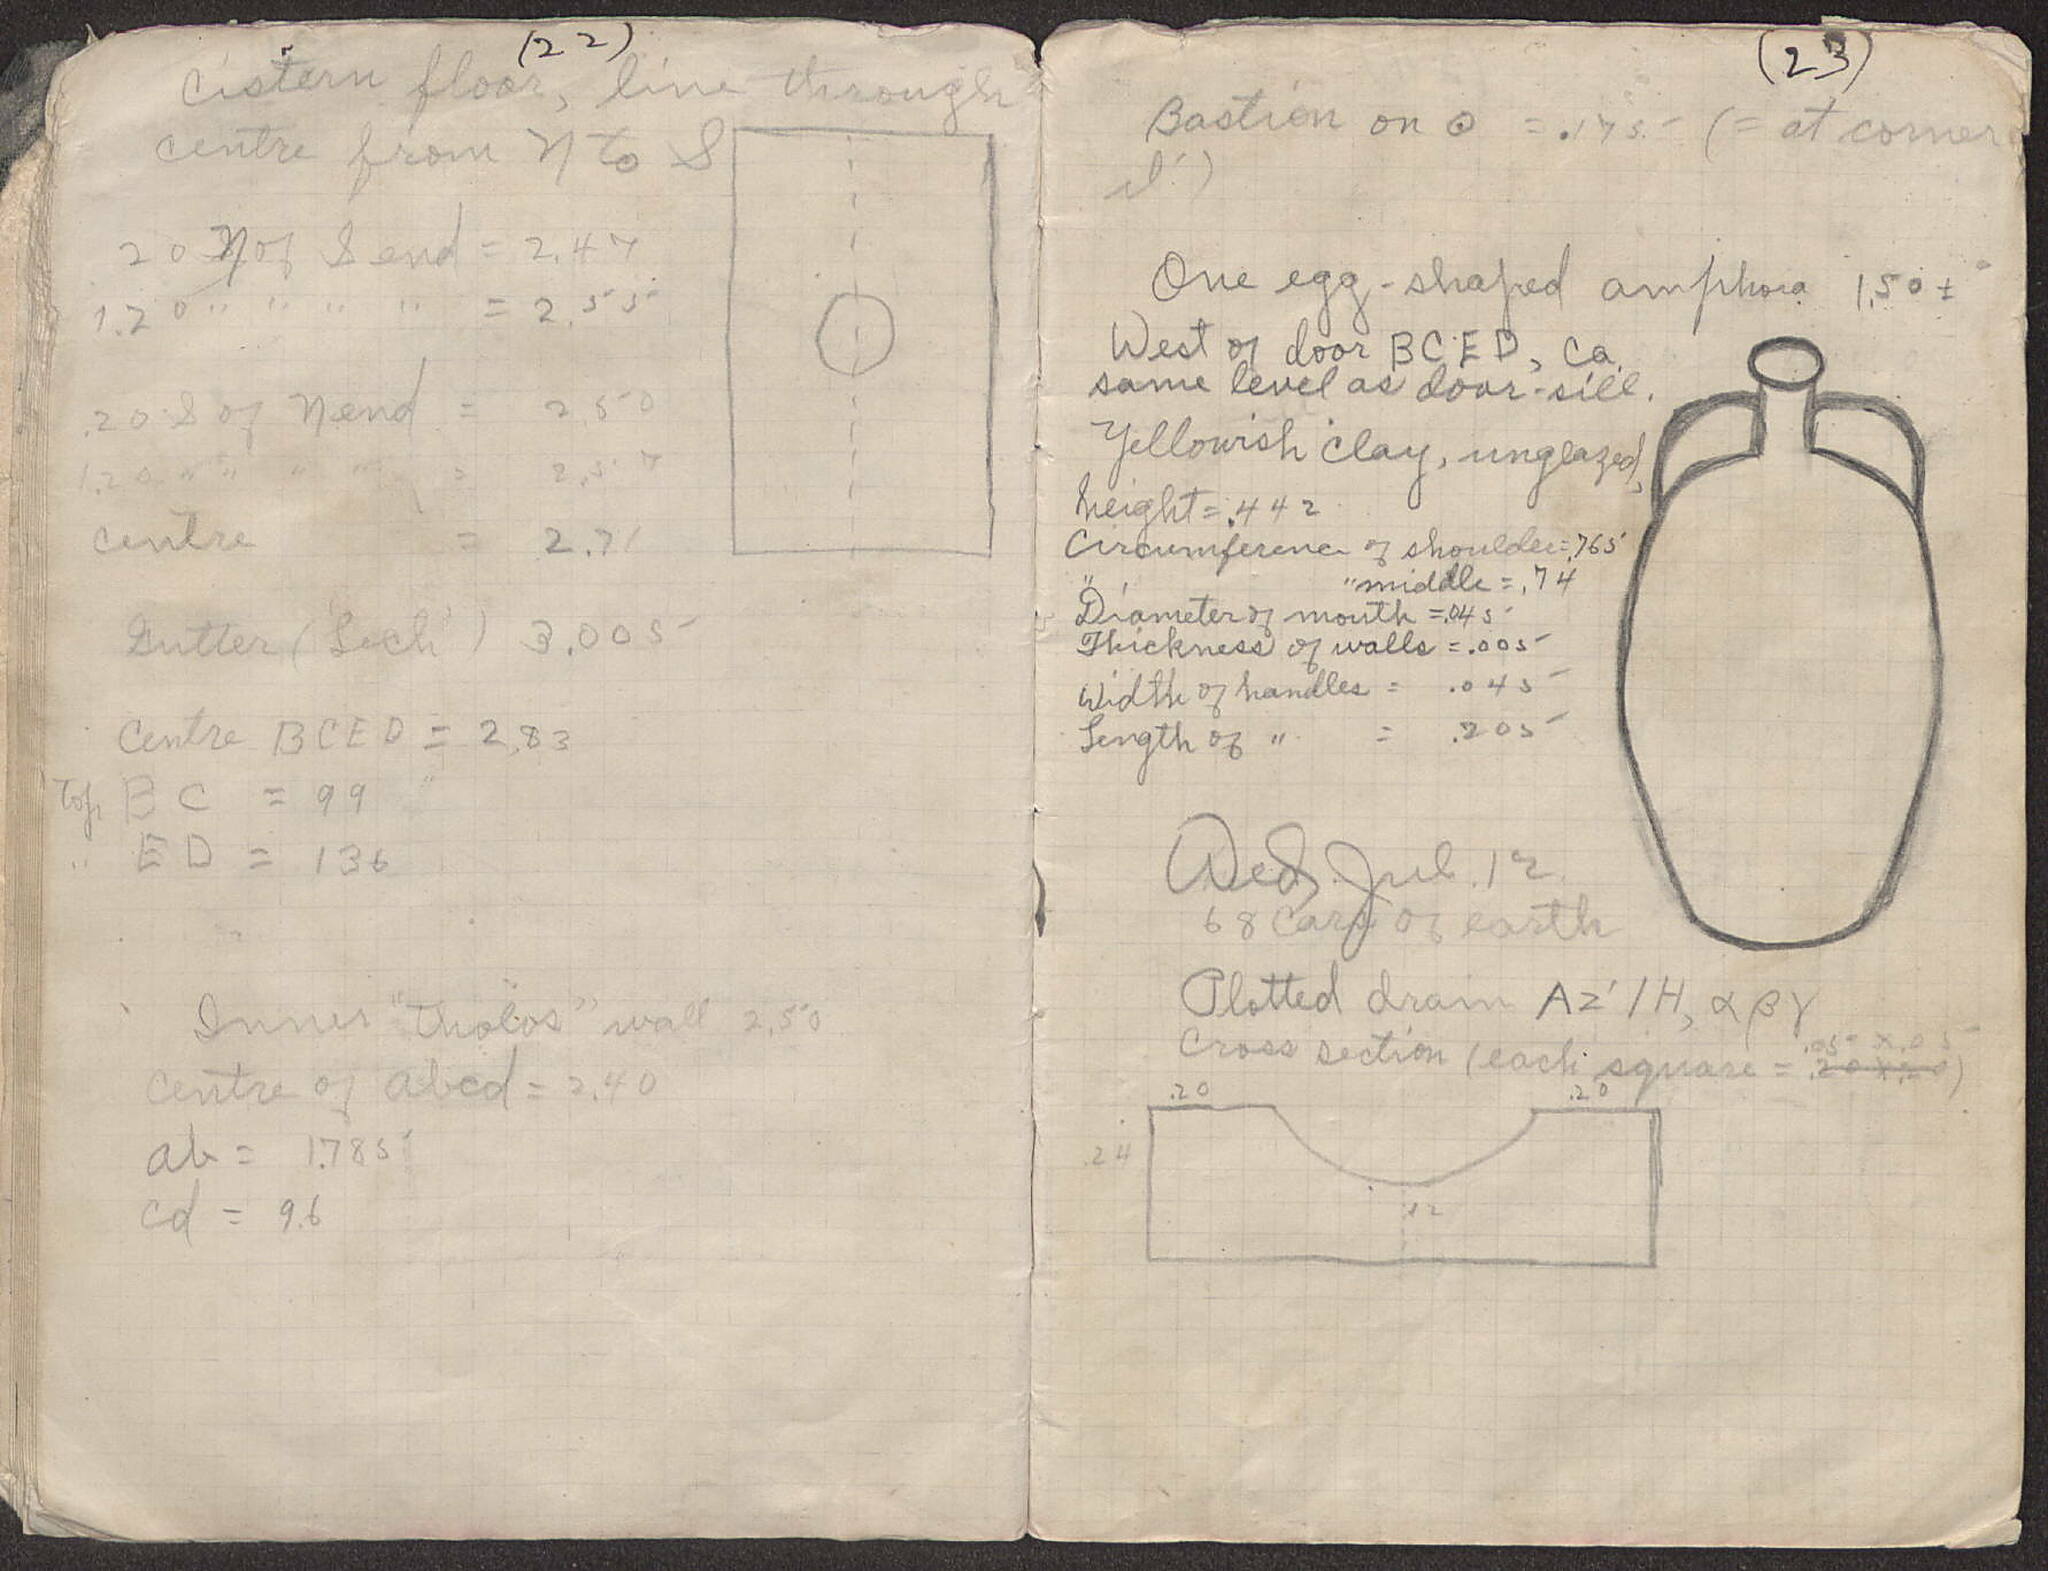 (22)
Cistern floor, line through
centre from N to S
.20 N of S end = 2.47
1.20 " " " " = 2.55
.20 S of N end = 2.50
1.20 " " " " = 2.57
Centre = 2.71
Gutter ('Loch') 3.005
Centre BCED = 2.83
Top BC = 99
" ED = 136
Inner "tholos" wall 2.50
Centre of abcd = 2.40
ab = 1.785
cd = 9.6
(23)
Bastion on ⊙ = .175 (= at corner
One egg-shaped amphora 1.50 ±
West of door BCED, ca.
same level as door-sill.
Yellowish clay, unglazed,
height = .442
Circumference of shoulder = .765
" " middle = .74
Diameter of mouth = .045
Thickness of walls = .005
Width of handles = .045
Length of " = .205
Wed, Jul. 12
68 Cars of earth
Plotted drain AZ'/H, α β γ
.05 x .05
Cross section (each square = .20 x .20)
.20 .20
.24
.12